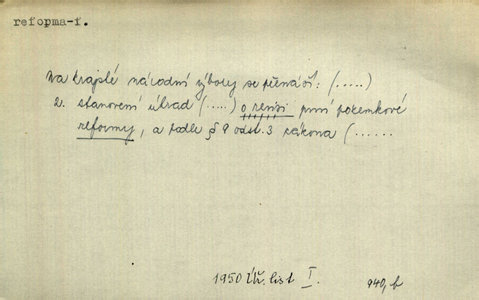 reforma-f.
Na krajské národní výbory se přenáší: (.....)
2. stanovení úhrad (.....) o revisi první pozemkové
reformy, a podle § 9 odst. 3 zákona (......
1950 Úř. list I. 940, b